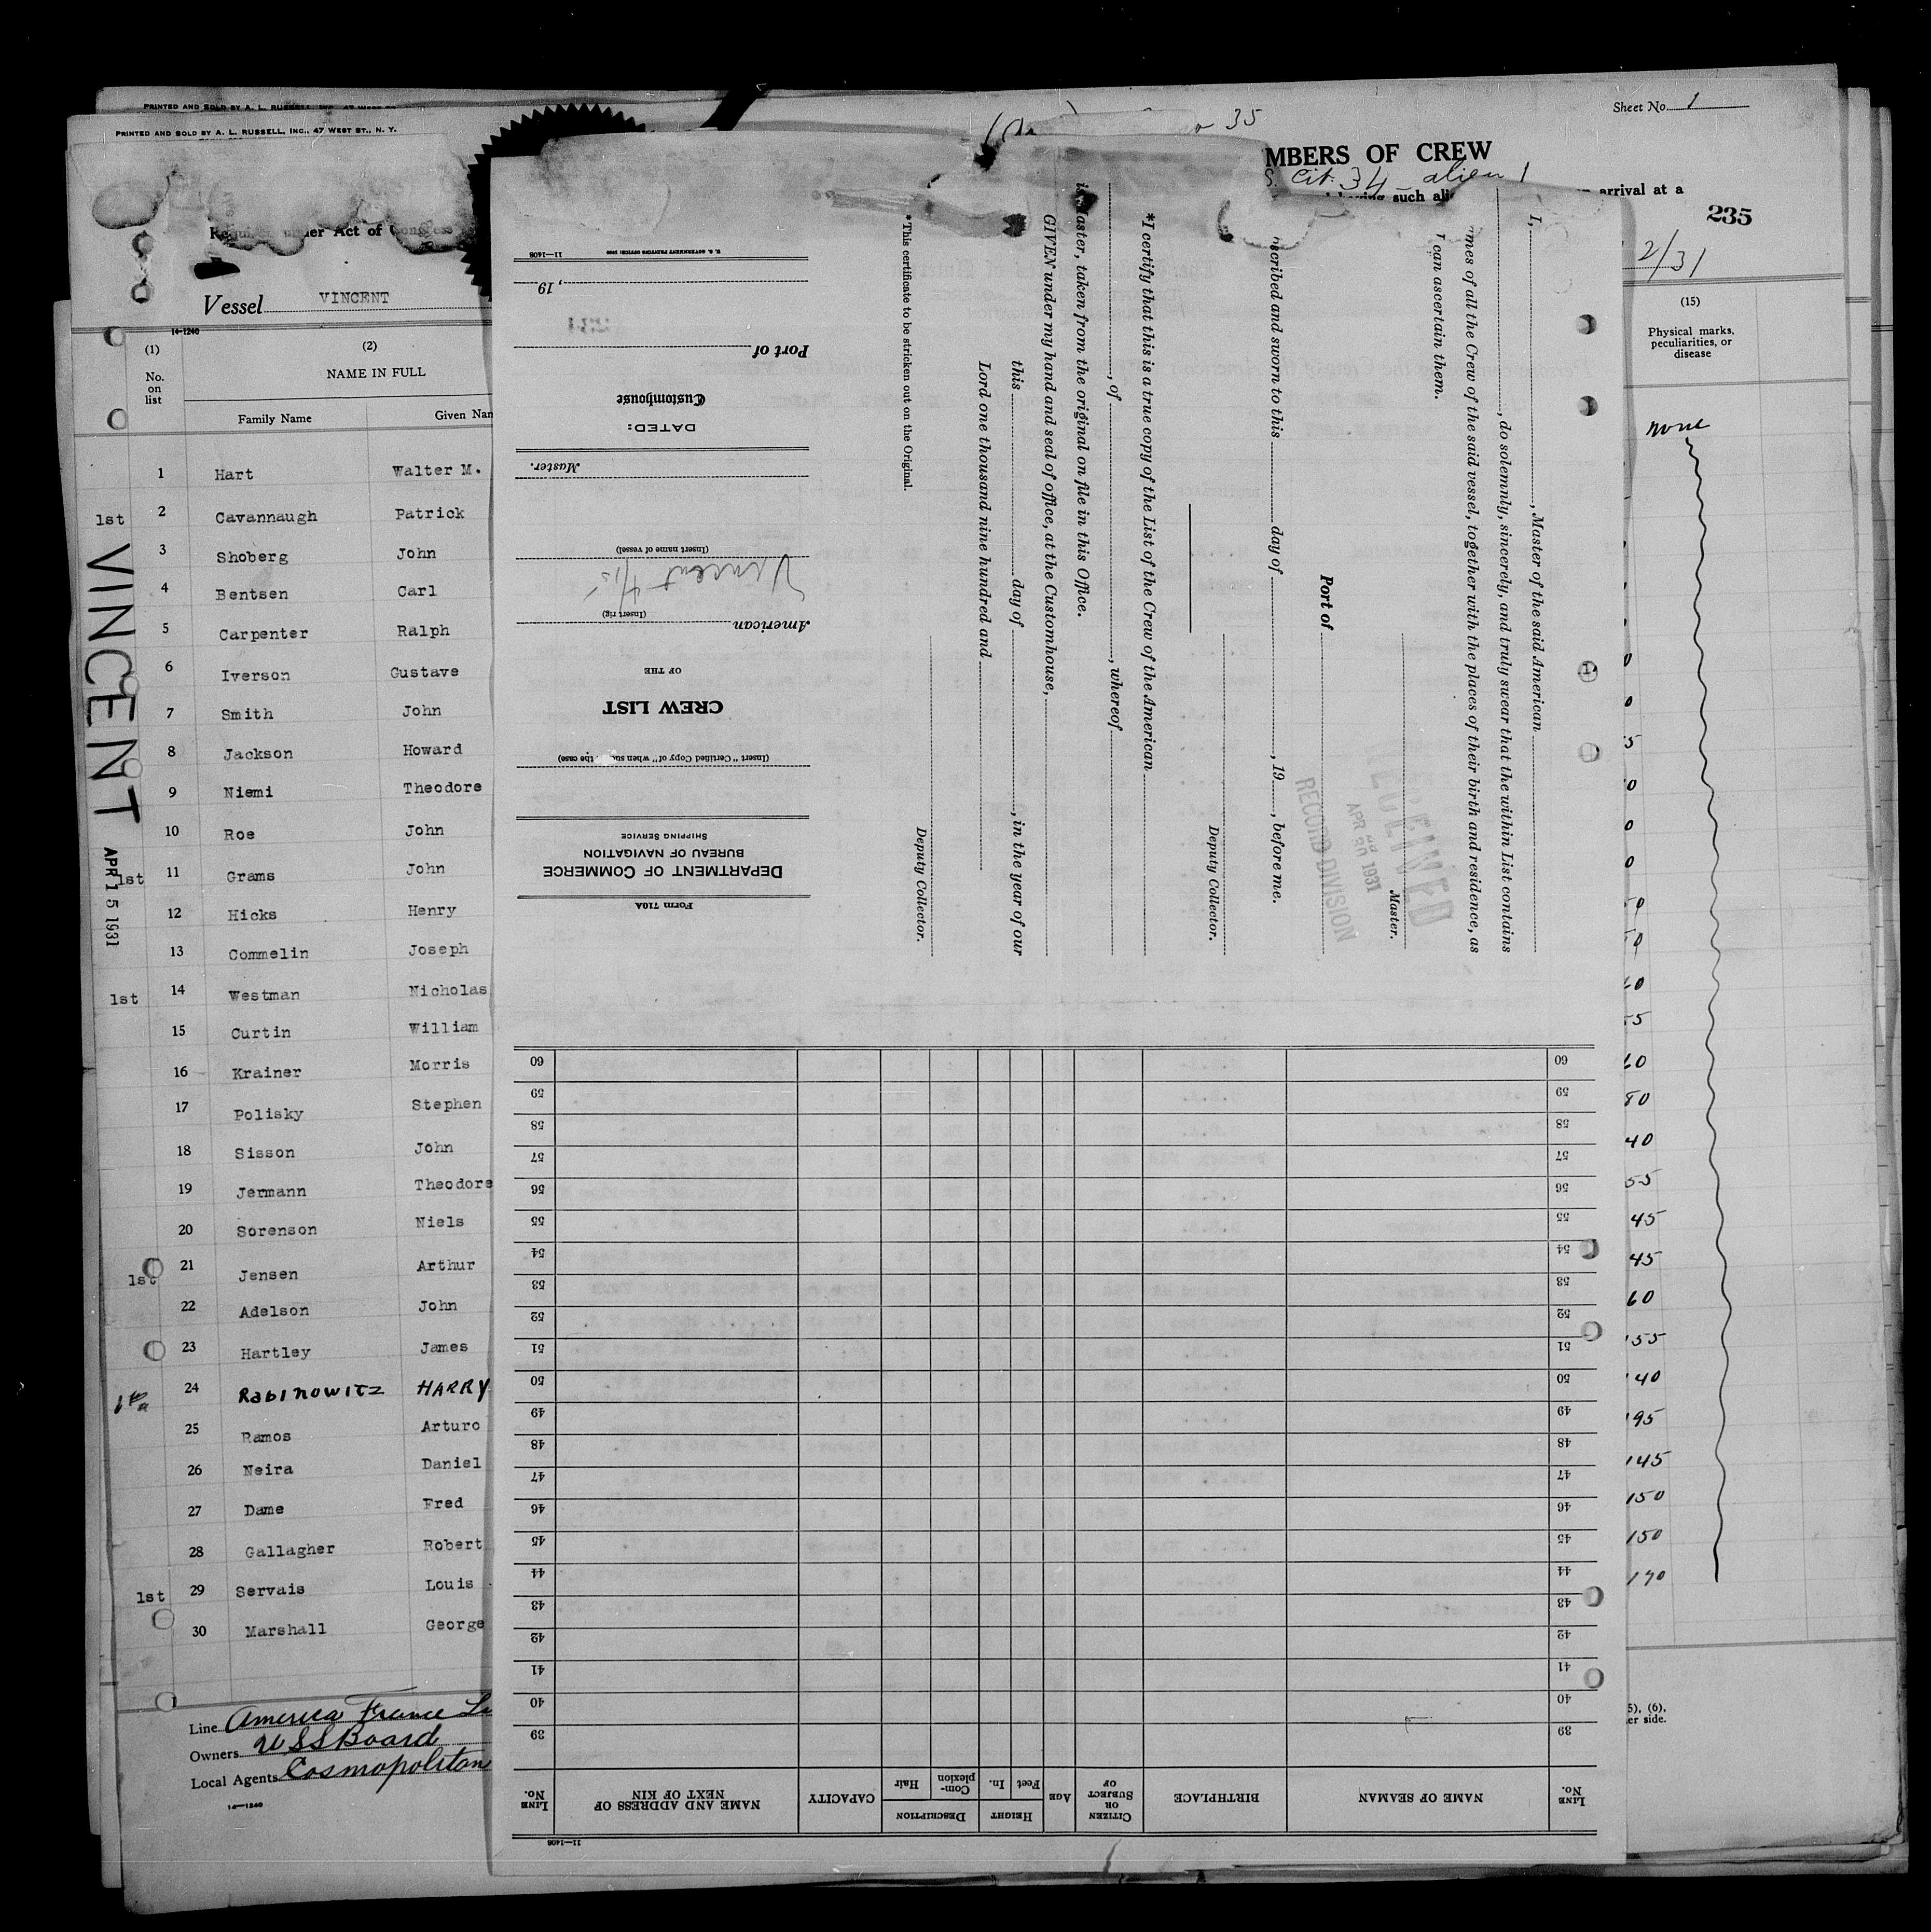 PRINTED AND SOLD BY A. L. RUSSELL, INC., 47 WEST
PRINTED AND SOLD BY A. L. RUSSELL, INC., 47 WEST ST., N. Y.
Sheet No. 1
35
MBERS OF CREW
S. Cit. 34 - alien 1
such arrival at a
235
Required under Act of Congress
2/31
Vessel VINCENT
14-1240
(1)
No.
on
list
(2)
NAME IN FULL
Family Name
Given Nam
(15)
Physical marks,
peculiarities, or
disease
none
1 Hart Walter M.
1st 2 Cavannaugh Patrick
3 Shoberg John
4 Bentsen Carl
5 Carpenter Ralph
6 Iverson Gustave
7 Smith John
8 Jackson Howard
9 Niemi Theodore
10 Roe John
1st 11 Grams John
12 Hicks Henry
13 Commelin Joseph
1st 14 Westman Nicholas
15 Curtin William
16 Krainer Morris
17 Polisky Stephen
18 Sisson John
19 Jermann Theodore
20 Sorenson Niels
1st 21 Jensen Arthur
22 Adelson John
23 Hartley James
24 Rabinowitz HARRY
25 Ramos Arturo
26 Neira Daniel
27 Dame Fred
28 Gallagher Robert
1st 29 Servais Louis
30 Marshall George
VINCENT
APR 15 1931
Line America France
Owners U S S Board
Local Agents Cosmopolitan
14-1240
80
40
55
45
45
60
155
140
195
145
150
150
170
5), (6),
er side.
I, , Master of the said American
, do solemnly, sincerely, and truly swear that the within List contains
mes of all the Crew of the said vessel, together with the places of their birth and residence, as
I can ascertain them.
Master.
Port of
scribed and sworn to this day of , 19 , before me.
Deputy Collector.
*I certify that this is a true copy of the List of the Crew of the American
, of , whereof
is Master, taken from the original on file in this Office.
GIVEN under my hand and seal of office, at the Customhouse,
this day of , in the year of our
Lord one thousand nine hundred and
Deputy Collector.
*This certificate to be stricken out on the Original.
RECEIVED
APR 30 1931
RECORD DIVISION
Form 710A
DEPARTMENT OF COMMERCE
BUREAU OF NAVIGATION
SHIPPING SERVICE
(Insert "Certified Copy of" when such the case)
CREW LIST
OF THE
American
(Insert rig)
Vincent 4/15
(Insert name of vessel)
Master.
DATED:
Customhouse
Port of
, 19
11-1408 U. S. GOVERNMENT PRINTING OFFICE
11-1408
LINE No.
NAME OF SEAMAN
BIRTHPLACE
CITIZEN OR SUBJECT OF
AGE
HEIGHT
Feet
In.
DESCRIPTION
Complexion
Hair
CAPACITY
NAME AND ADDRESS OF NEXT OF KIN
LINE No.
39 39
40 40
41 41
42 42
43 43
44 44
45 45
46 46
47 47
48 48
49 49
50 50
51 51
52 52
53 53
54 54
55 55
56 56
57 57
58 58
59 59
60 60